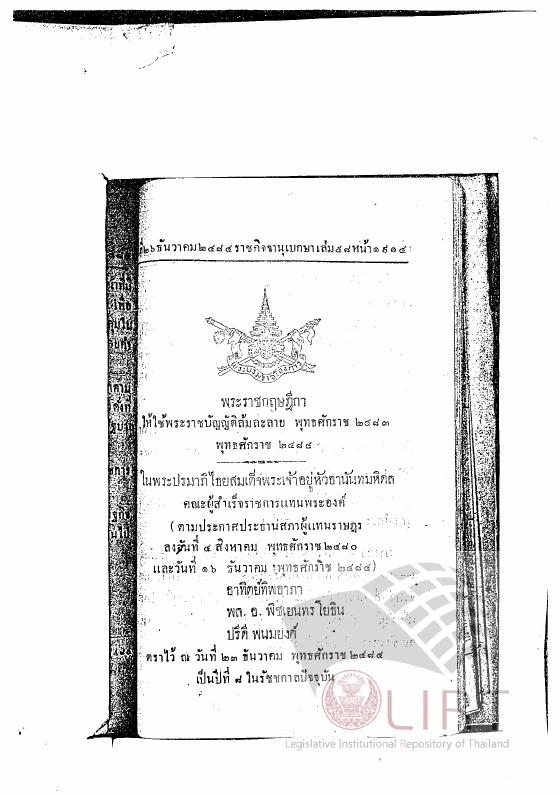 ๒๖ ธันวาคม ๒๔๘๔ ราชกิจจานุเบกษา เล่ม ๕๘ หน้า ๑๙๑๔
พระบรมราชโองการ
พระราชกฤษฎีกา
ให้ใช้พระราชบัญญัติล้มละลาย พุทธศักราช ๒๔๘๓
พุทธศักราช ๒๔๘๔
ในพระปรมาภิไธยสมเด็จพระเจ้าอยู่หัวอานันทมหิดล
คณะผู้สำเร็จราชการแทนพระองค์
(ตามประกาศประธานสภาผู้แทนราษฎร
ลงวันที่ ๔ สิงหาคม พุทธศักราช ๒๔๘๐
และวันที่ ๑๖ ธันวาคม พุทธศักราช ๒๔๘๔)
อาทิตย์ทิพอาภา
พล. อ. พิชเยนทรโยธิน
ปรีดี พนมยงค์
ตราไว้ ณ วันที่ ๒๓ ธันวาคม พุทธศักราช ๒๔๘๔
เป็นปีที่ ๘ ในรัชชกาลปัจจุบัน
LIRT
Legislative Institutional Repository of Thailand